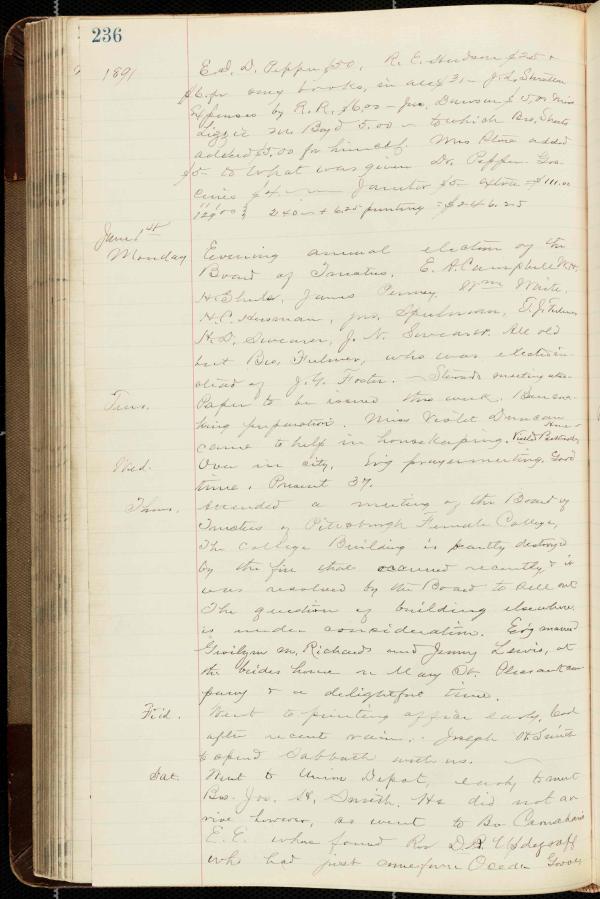 236
1891 Ed. D. Pepper $50. R. E. Hudson $25 &
$6. for song books, in all $31 - J. L.
Expenses by R. R. $6.00 - Jno. Dawson $5.00 Miss
Lizzie Mc Boyd 5.00 - to which Bro.
added $5.00 for himself. Mrs added
$5 - to what was given Dr. Pepper.
$4. Janitor $5 - extra = $111.00
129.00 240.00 + 6.25 printing = $246.25
June 1st
Monday Evening annual election of the
Board of Trustees. E. A. Campbell, W. H.
H. Shults, James Penney, Wm White,
H. C. Jno. Spulman, T. J. Fulmer
H. D. Swearer, J. N. Swearer. All old
but Bro. Fulmer, who was elected in-
stead of J. Y. Foster. - Stewards meeting also
Tues. Paper to be issued this week. Been
preparation. Miss Violet Duncan
came to help in housekeeping.
Wed. Over in city. Ev'g prayermeeting. Good
time. Present 37.
Thurs. Attended a meeting of the Board of
Trustees of Pittsburgh Female College,
The College Building is partly destroyed
by the fire that occurred recently & it
was resolved by the Board to sell out
The question of building elsewhere
is under consideration. Ev'g married
Gwilym M. Richards and Jenny Lewis, at
the brides home on Mary St. Pleasant com-
pany & a delightful time.
Frid. Went to printing office early, cool
after recent rain. - Joseph H. Smith
to spend Sabbath with us.
Sat. Went to Union Depot, early, to meet
Bro. Jos. H. Smith. He did not ar-
rive however, so went to Bro Carnahans
E. E. where found Rev D. B. Updegraff
who had just come from Ocean Grove